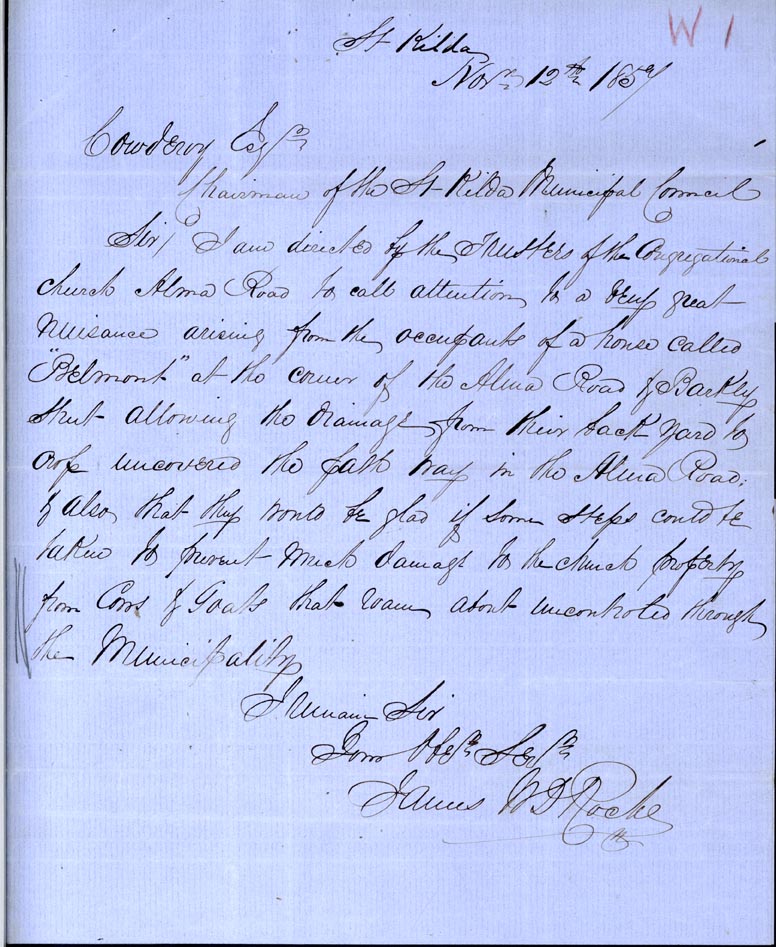 W 1
St Kilda
Novr 12th 1857
Cowderoy Esqr
Chairman of the St Kilda Municipal Council
Sir/ I am directed by the Trustees of the Congregational
church Alma Road to call attention to a very great
Nuisance arising from the occupants of a house called
"Belmont" at the corner of the Alma Road & Barkly
street allowing the drainage from their back yard to
cross uncovered the path way in the Alma Road;
& also that they would be glad if some steps could be
taken to prevent much damage to the church property
from Cows & Goats that roam about uncontroled through
the Municipality
I remain Sir
Your Obet Servt
James W D Roche